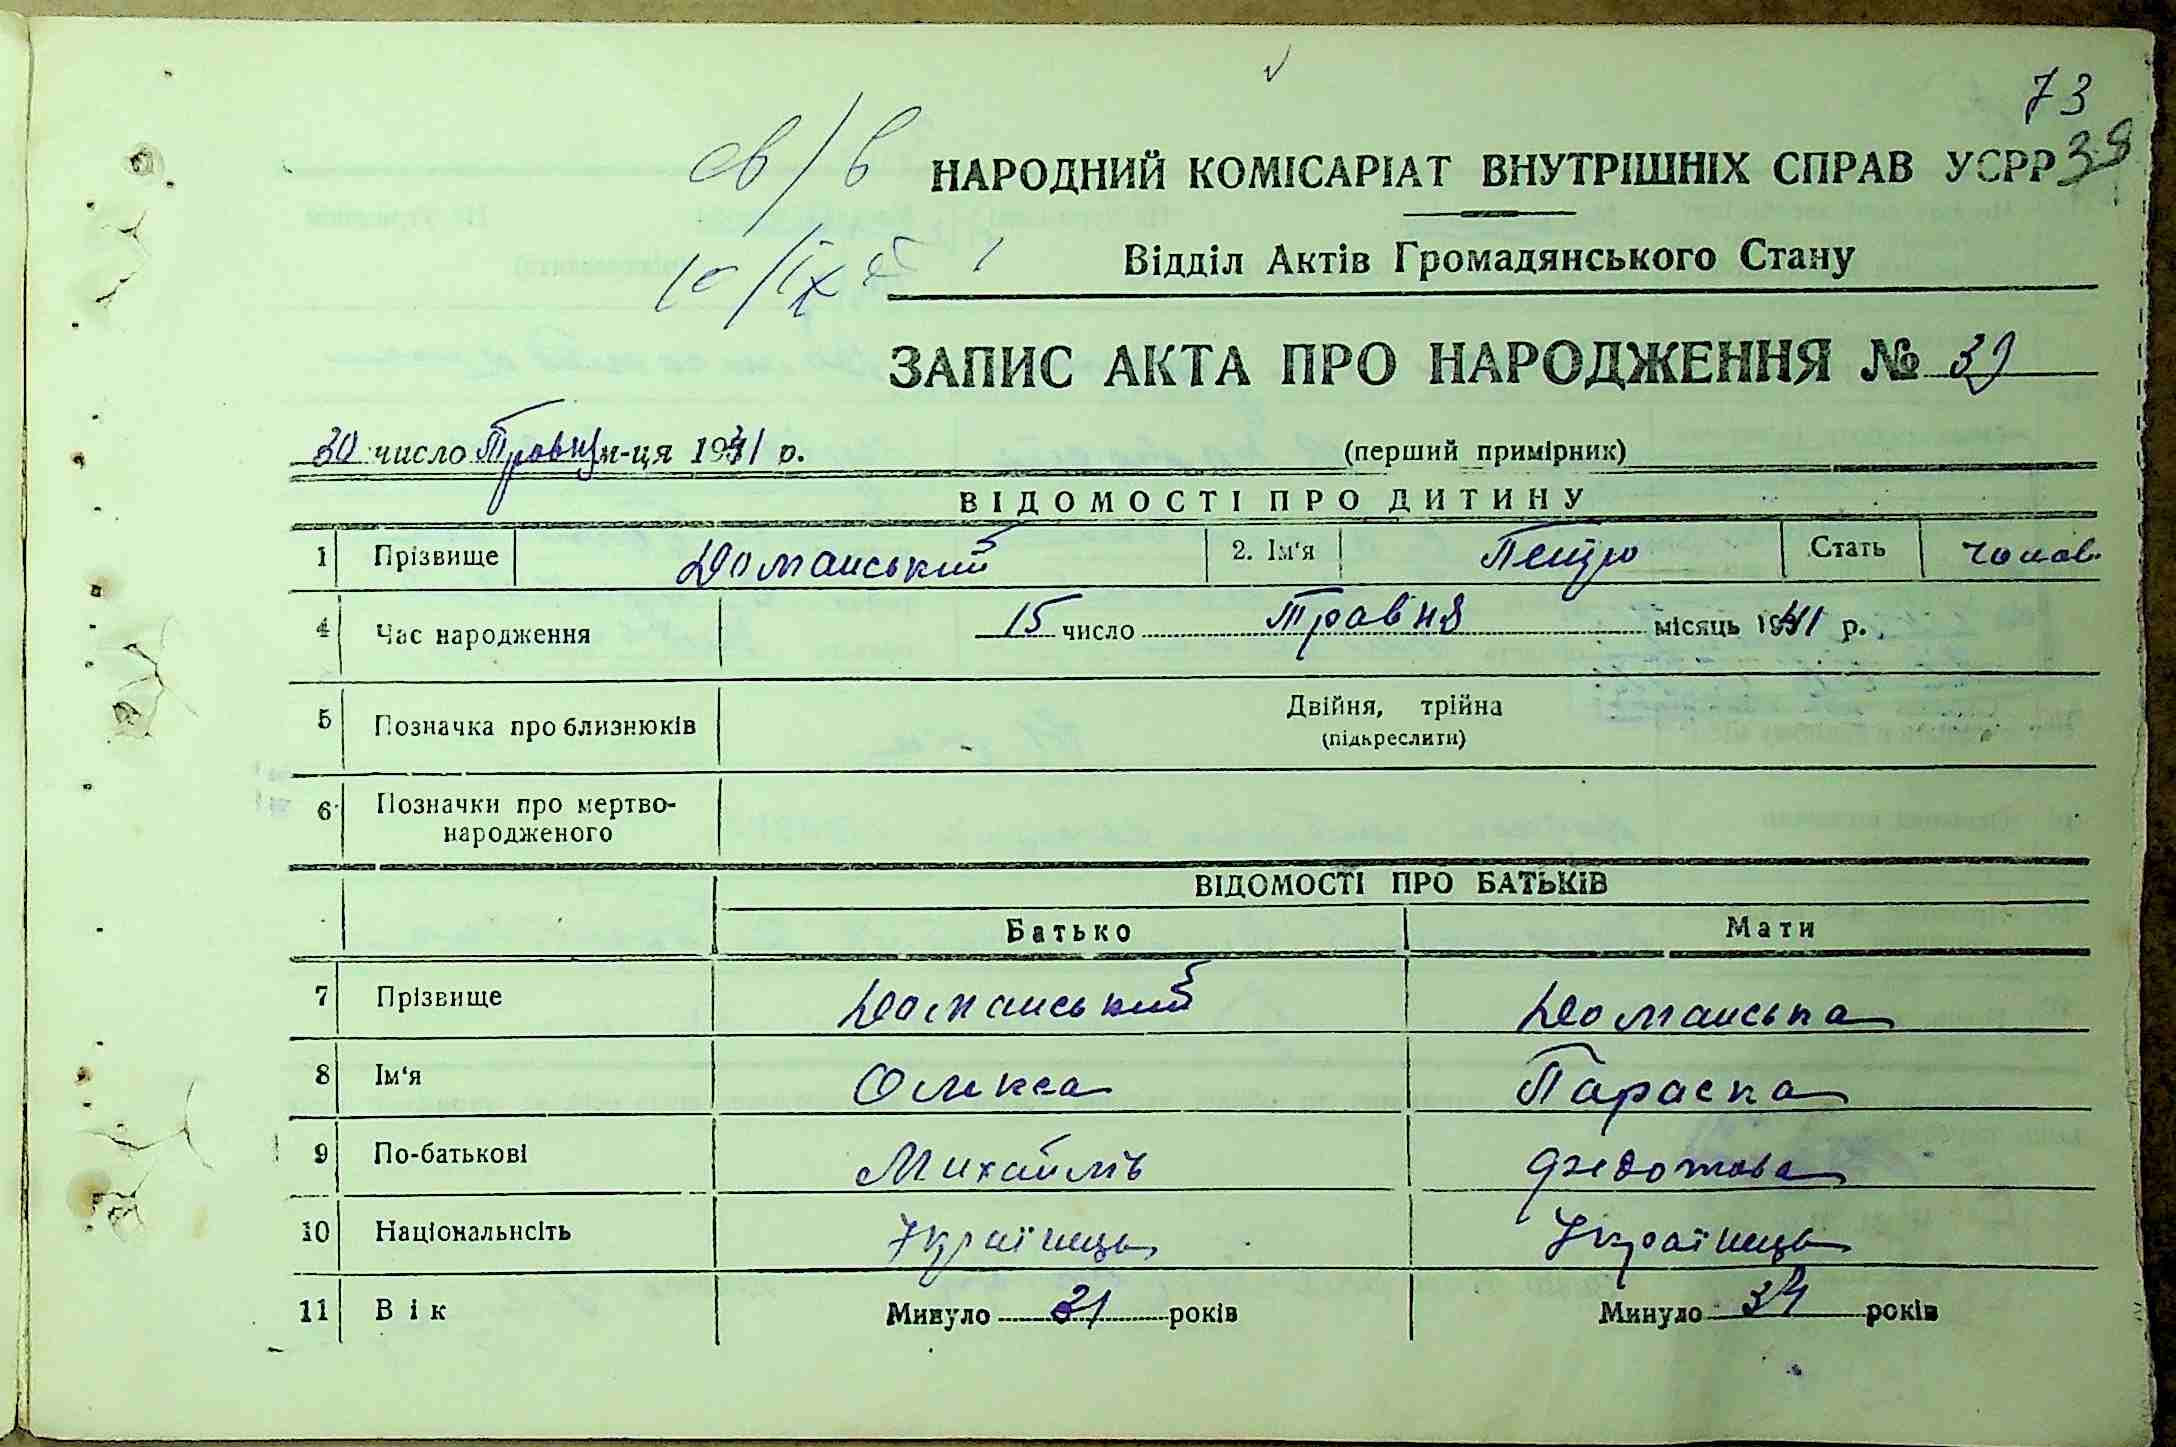 73
39
св/в
НАРОДНИЙ КОМІСАРІАТ ВНУТРІШНІХ СПРАВ УСРР
Відділ Актів Громадянського Стану
ЗАПИС АКТА ПРО НАРОДЖЕННЯ № 39
30 число Травня м-ця 1941 р. (перший примірник)
ВІДОМОСТІ ПРО ДИТИНУ
1 Прізвище Доманський 2. Ім'я Петро Стать чолов.
4 Час народження 15 число Травня місяць 1941 р.
5 Позначка про близнюків Двійня, трійна
(підкреслити)
6 Позначки про мертво-
народженого
ВІДОМОСТІ ПРО БАТЬКІВ
Батько Мати
7 Прізвище Доманський Доманська
8 Ім'я Олекса Параска
9 По-батькові Михайлів Федотова
10 Національнсіть Українець Українець
11 Вік Минуло 31 років Минуло 34 років